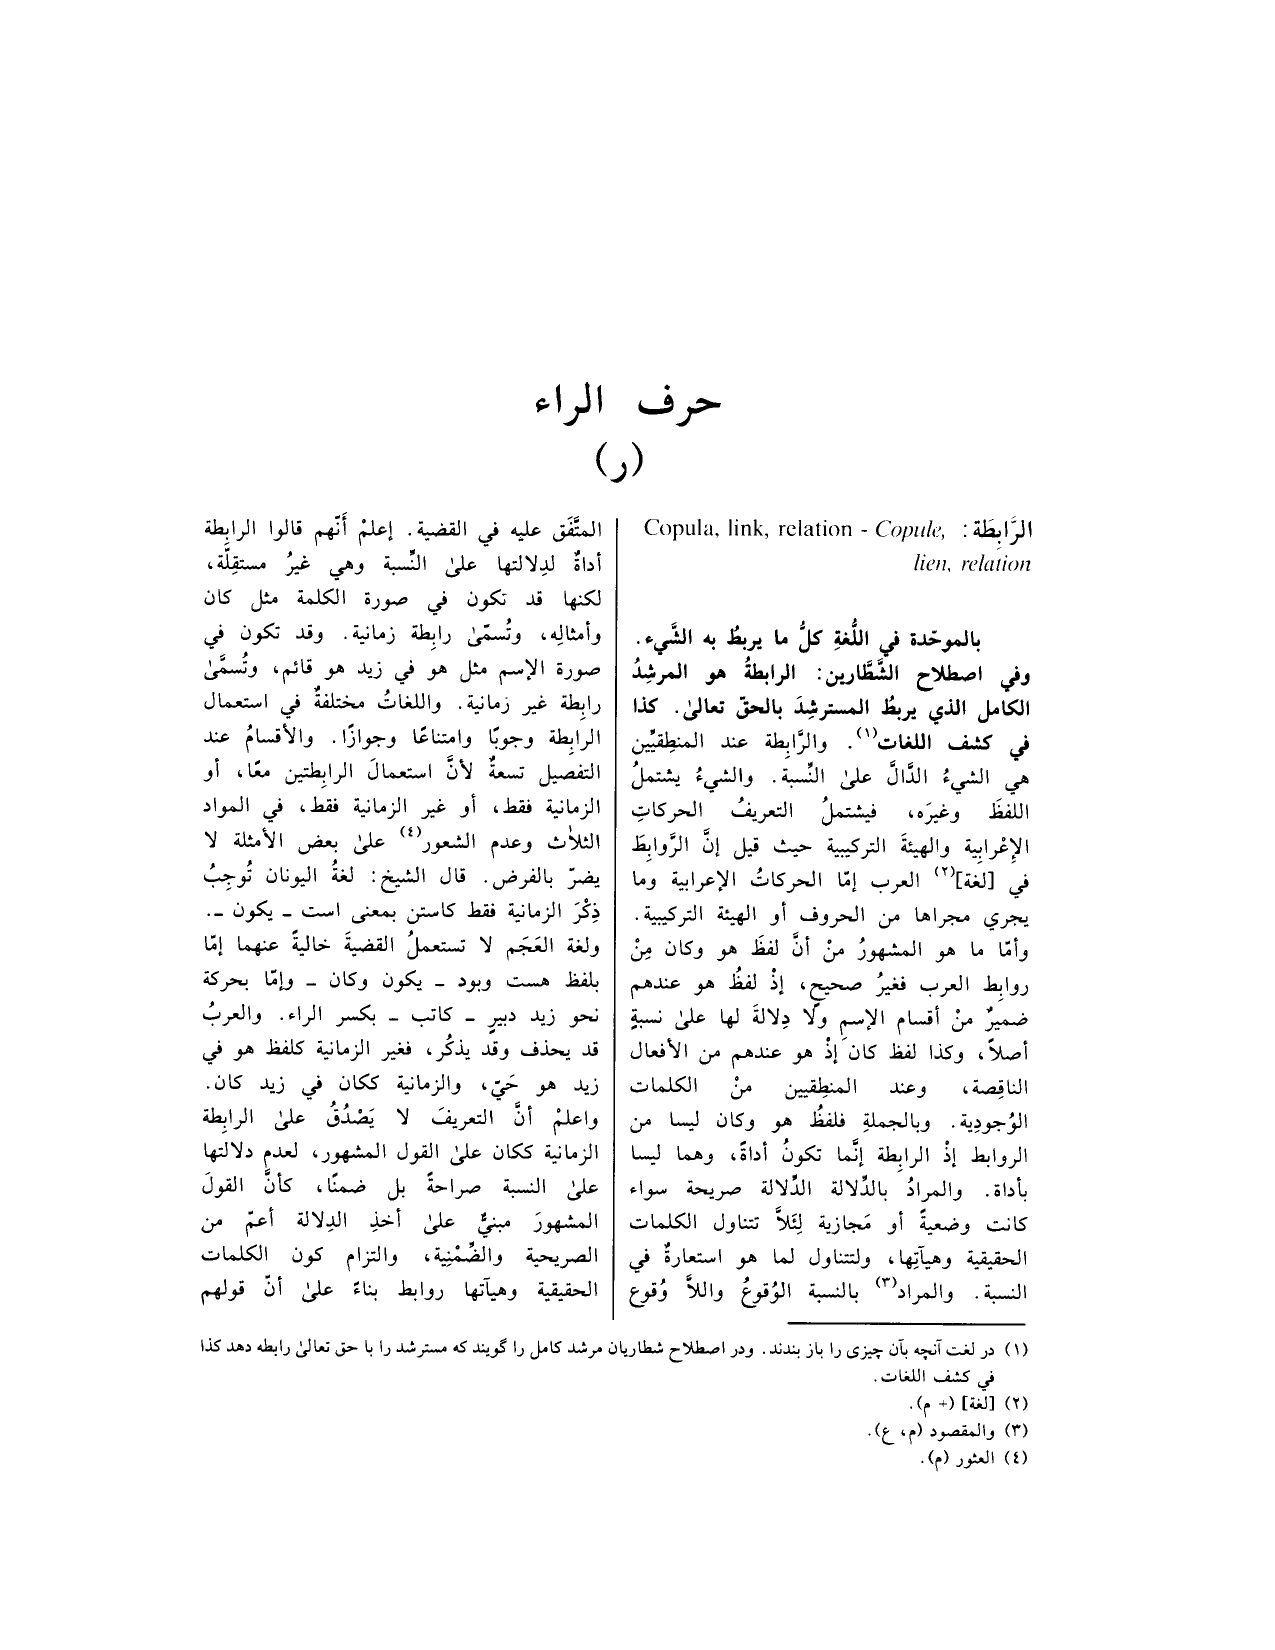 حرف الراء
(ر)
الرَّابِطَة: Copula, link, relation - Copule,
lien, relation
بالموحّدة في اللُّغةِ كلُّ ما يربطُ به الشَّيء.
وفي اصطلاح الشَّطَّارين: الرابطةُ هو المرشِدُ
الكامل الذي يربطُ المسترشِدَ بالحقّ تعالىٰ. كذا
في كشف اللغات(١). والرَّابِطة عند المنطِقيِّين
هي الشيءُ الدَّالّ علىٰ النِّسبة. والشيءُ يشتملُ
اللفظَ وغيرَه، فيشتملُ التعريفُ الحركاتِ
الإعْرابِية والهيئةَ التركيبية حيث قيل إنَّ الرَّوابِطَ
في [لغة](٢) العرب إمّا الحركاتُ الإعرابية وما
يجري مجراها من الحروف أو الهيئة التركيبية.
وأمّا ما هو المشهورُ منْ أنَّ لفظَ هو وكان مِنْ
روابِط العرب فغيرُ صحيحٍ، إذْ لفظُ هو عندهم
ضميرٌ منْ أقسام الإسمِ ولا دِلالةَ لها علىٰ نسبةٍ
أصلاً، وكذا لفظ كان إذْ هو عندهم من الأفعال
الناقِصة، وعند المنطِقيين منْ الكلمات
الوُجودِية. وبالجملةِ فلفظُ هو وكان ليسا من
الروابط إذْ الرابِطة إنَّما تكونُ أداةً، وهما ليسا
بأداة. والمرادُ بالدِّلالة الدِّلالة صريحة سواء
كانت وضعيةً أو مَجازية لِئَلاَّ تتناول الكلمات
الحقيقية وهيآتِها، ولتتناول لما هو استعارةٌ في
النسبة. والمراد(٣) بالنسبة الوُقوعُ واللاَّ وُقوع
المتَّفَق عليه في القضية. إعلمْ أَنّهم قالوا الرابِطة
أداةٌ لدِلالتها علىٰ النِّسبة وهي غيرُ مستقِلَّة،
لكنها قد تكون في صورة الكلمة مثل كان
وأمثالِه، وتُسمّىٰ رابِطة زمانية. وقد تكون في
صورة الإسم مثل هو في زيد هو قائم، وتُسمَّىٰ
رابطة غير زمانية. واللغاتُ مختلفةٌ في استعمال
الرابِطة وجوبًا وامتناعًا وجوازًا. والأقسامُ عند
التفصيل تسعةٌ لأنَّ استعمالَ الرابِطتين معًا، أو
الزمانية فقط، أو غير الزمانية فقط، في المواد
الثلاٰث وعدم الشعور(٤) علىٰ بعض الأمثلة لا
يضرّ بالفرض. قال الشيخ: لغةُ اليونان تُوجِبُ
ذِكْرَ الزمانية فقط كاستن بمعنى است ـ يكون ـ.
ولغة العَجَم لا تستعملُ القضيةَ خاليةً عنهما إمّا
بلفظ هست وبود ـ يكون وكان ـ وإمّا بحركة
نحو زيد دبيرِ ـ كاتب ـ بكسر الراء. والعربُ
قد يحذف وقد يذكُر، فغير الزمانية كلفظ هو في
زيد هو حَيّ، والزمانية ككان في زيد كان.
واعلمْ أنَّ التعريفَ لا يَصْدُقُ علىٰ الرابِطة
الزمانية ككان علىٰ القول المشهور، لعدم دلالتها
علىٰ النسبة صراحةً بل ضمنًا، كأنَّ القولَ
المشهورَ مبنيٌّ علىٰ أخذِ الدِلالة أعمّ من
الصريحية والضِّمْنِية، والتزام كون الكلمات
الحقيقية وهيآتها روابط بناءً علىٰ أنّ قولهم
(١) در لغت آنچه بآن چيزى را باز بندند. ودر اصطلاح شطاريان مرشد كامل را گويند كه مسترشد را با حق تعالىٰ رابطه دهد كذا
في كشف اللغات.
(٢) [لغة] (+ م).
(٣) والمقصود (م، ع).
(٤) العثور (م).